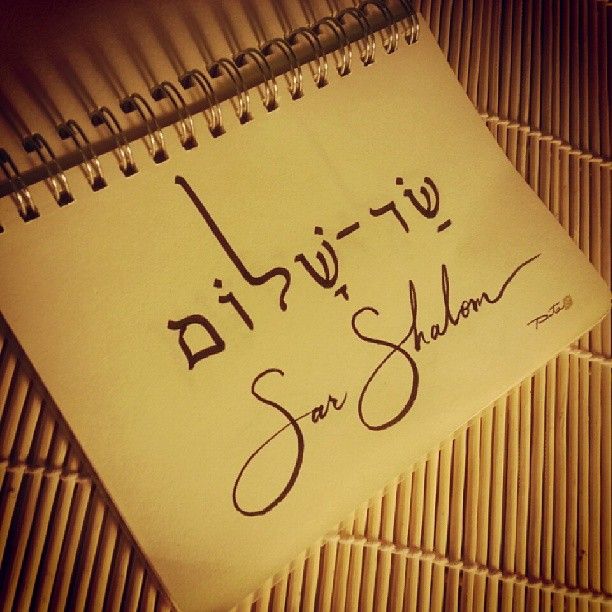 שַׂר־שָׁלוֹם
Sar Shalom